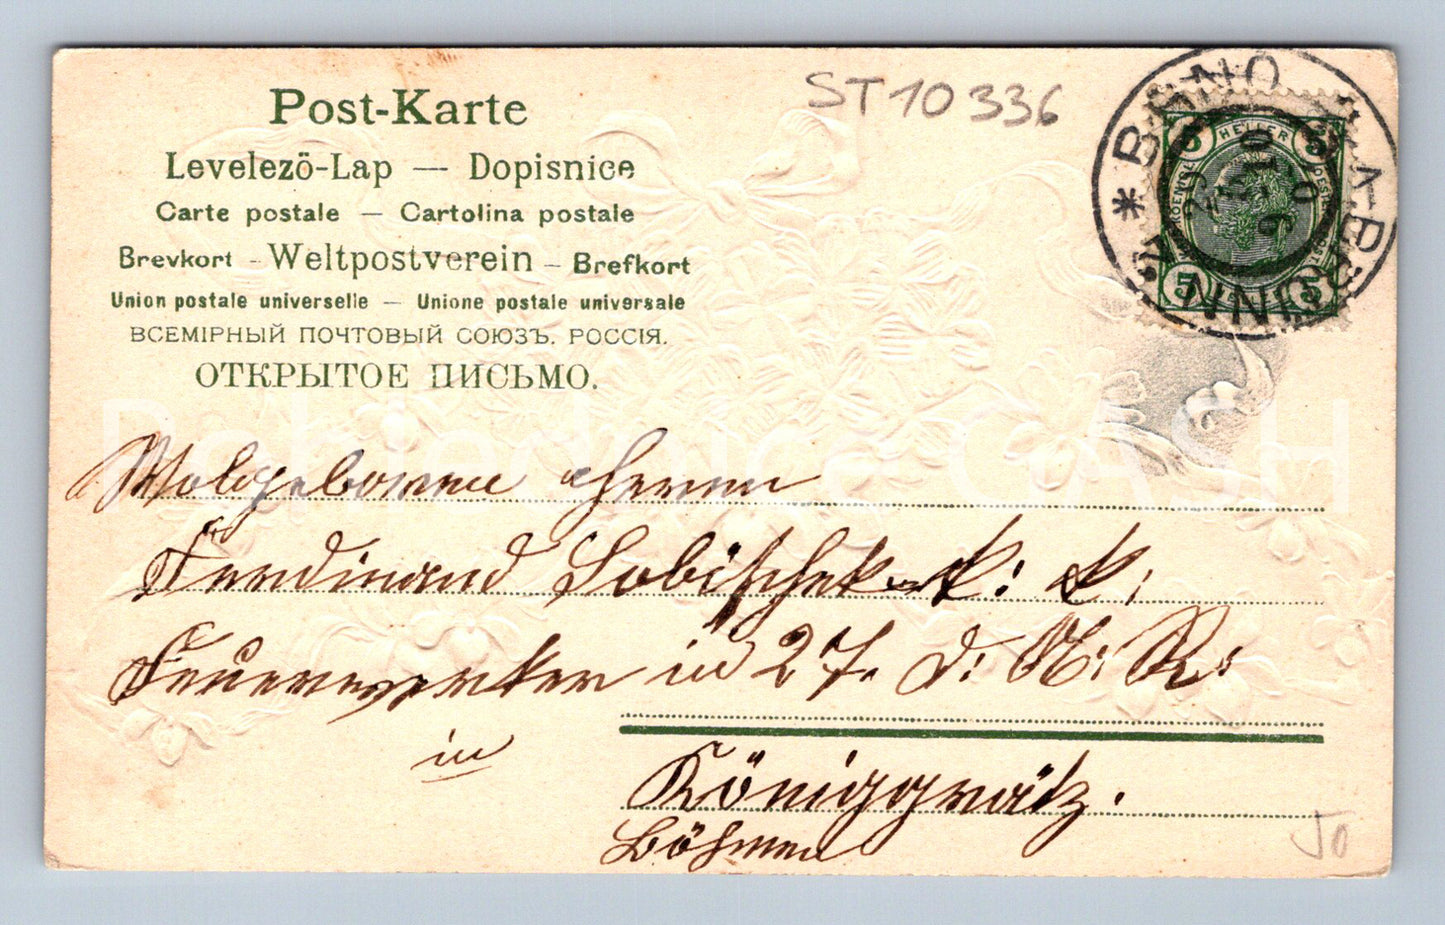 Post-Karte
ST10336
Levelezö-Lap — Dopisnice
Carte postale — Cartolina postale
Brevkort - Weltpostverein - Brefkort
Union postale universelle — Unione postale universale
ВСЕМІРНЫЙ ПОЧТОВЫЙ СОЮЗЪ. РОССІЯ.
ОТКРЫТОЕ ПИСЬМО.
5 HELLER 5
BRÜNN
BRNO
Pohlednice CASH
Wolgeborenen Herren
Ferdinand Sobischek k: k:
Feuerwerker in 27. d: A: R:
in Königgrätz.
Böhmen
50